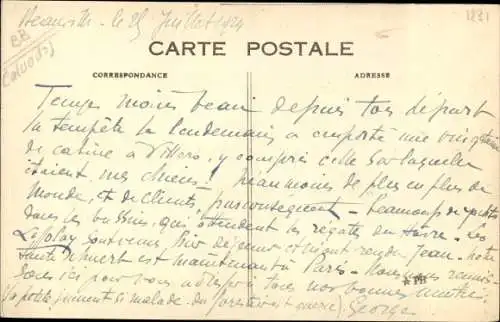 Deauville - le 25 Juillet 1924
1231
BB
(Calvados)
CARTE POSTALE
CORRESPONDANCE
ADRESSE
Temps moins beau depuis ton départ
la tempête le lendemain a emporté une vingtaine
de cabine à Villers, y compris celle sur laquelle
étaient mes chiens! Néanmoins de plus en plus de
monde, et de clients, par conséquent - beaucoup de yachts
dans les bassins, qui attendent les régates du Havre. Les
sont venus hier déjeuner et Jean. notre
est maintenant à Paris - Nous nous
tous ici pour vous adresser tous nos bonnes amitiés.
(Ma petite jument si malade est guérie). Georges